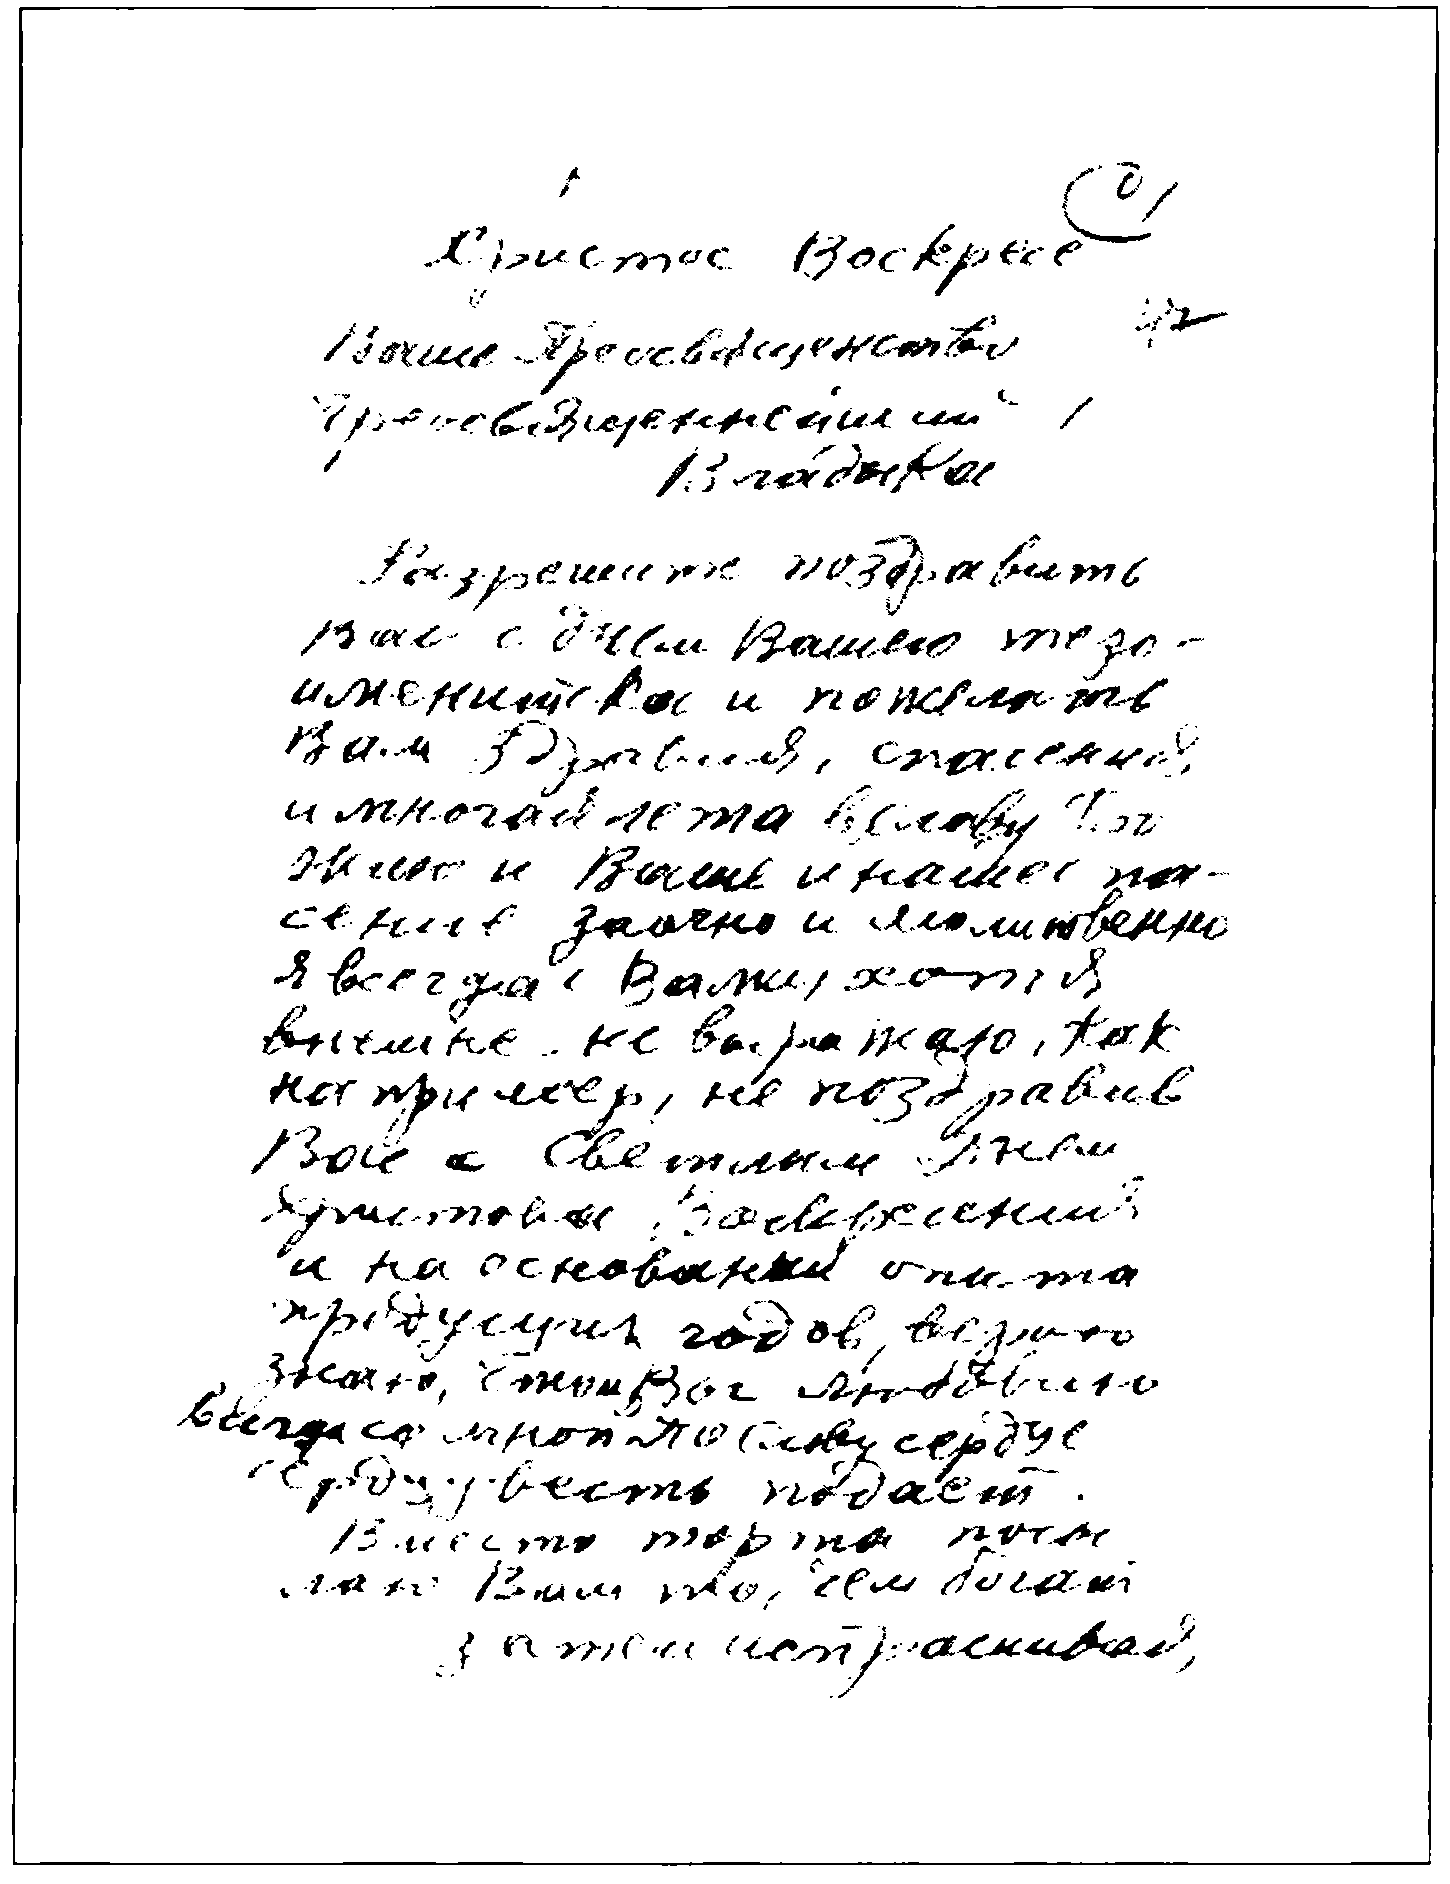 Христос Воскресе
Ваше Преосвященство
Преосвященнейший
Владыка
Разрешите поздравить
Вас с днем Вашего тезо-
именитства и пожелать
Вам здравия, спасения,
и многая лета в славу Бо
жию и Ваше и наше спа-
сение заочно и молитвенно
я всегда с Вами, хотя
внешне не выражаю, как
например, не поздравив
Вас с Светлым Днем
Христова Воскресения
и на основании опыта
предущих годов,
знаю, что и Вы с любовию
всегда со мной по слову сердце
сердцу весть подает.
Вместо торта посы
лаю Вам то, чем богат
затем испрашивая,